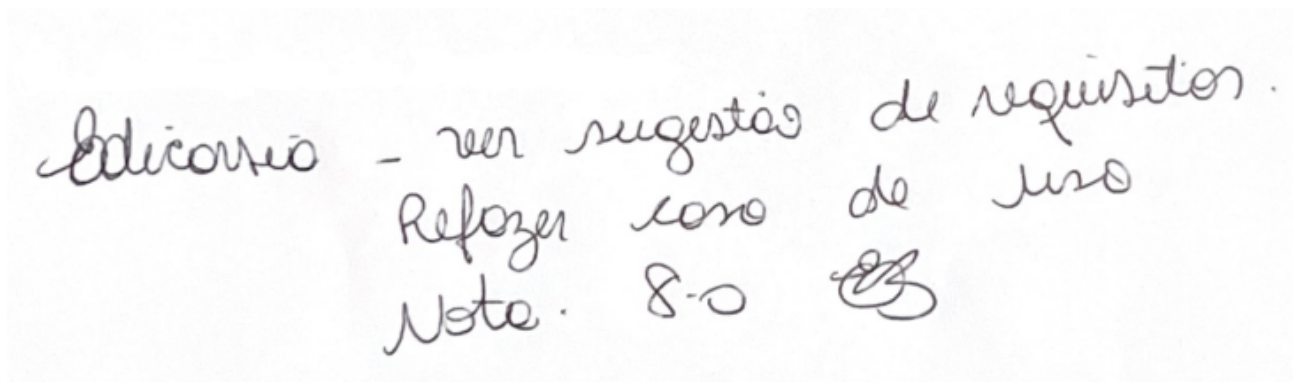 Edicarsio - ver sugestão de requisitos.
Refazer caso de uso
Nota. 8.0